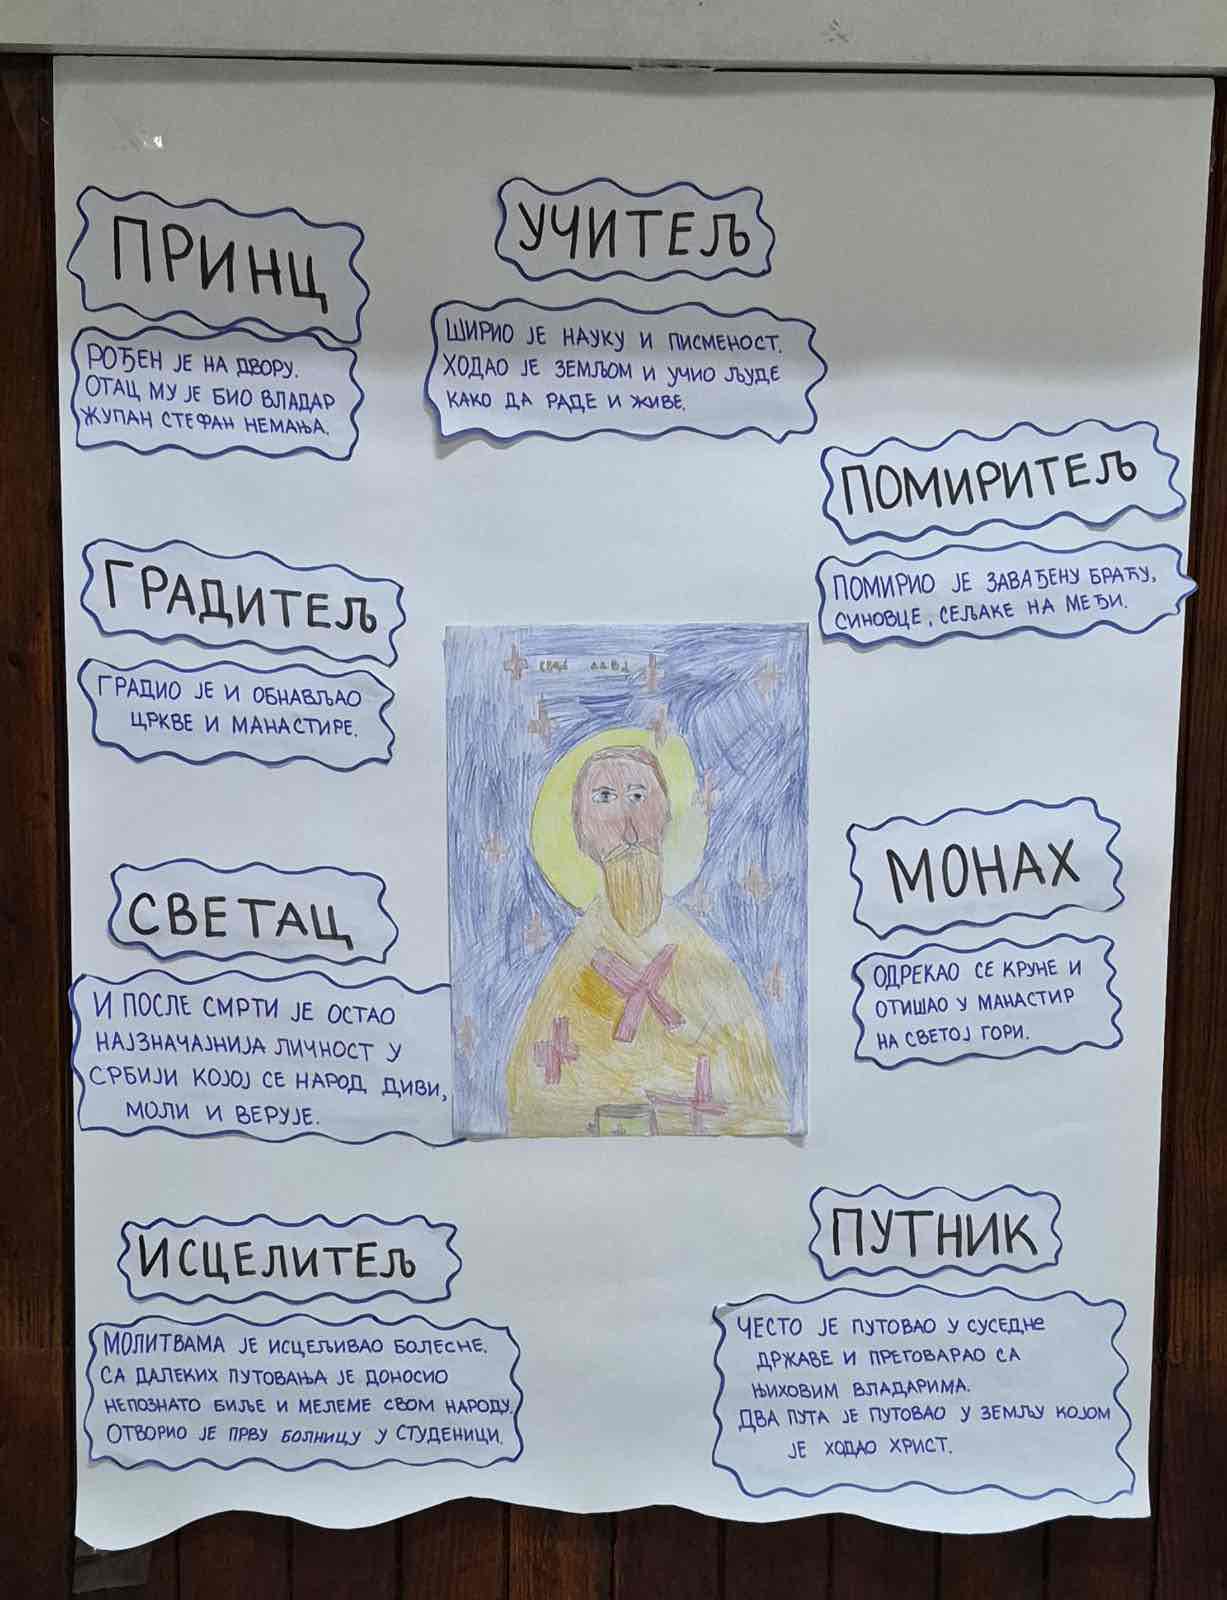 ПРИНЦ
РОЂЕН ЈЕ НА ДВОРУ.
ОТАЦ МУ ЈЕ БИО ВЛАДАР
ЖУПАН СТЕФАН НЕМАЊА.
УЧИТЕЉ
ШИРИО ЈЕ НАУКУ И ПИСМЕНОСТ.
ХОДАО ЈЕ ЗЕМЉОМ И УЧИО ЉУДЕ
КАКО ДА РАДЕ И ЖИВЕ.
ПОМИРИТЕЉ
ПОМИРИО ЈЕ ЗАВАЂЕНУ БРАЋУ,
СИНОВЦЕ, СЕЉАКЕ НА МЕЂИ.
ГРАДИТЕЉ
ГРАДИО ЈЕ И ОБНАВЉАО
ЦРКВЕ И МАНАСТИРЕ.
МОНАХ
ОДРЕКАО СЕ КРУНЕ И
ОТИШАО У МАНАСТИР
НА СВЕТОЈ ГОРИ.
СВЕТАЦ
И ПОСЛЕ СМРТИ ЈЕ ОСТАО
НАЈЗНАЧАЈНИЈА ЛИЧНОСТ У
СРБИЈИ КОЈОЈ СЕ НАРОД ДИВИ,
МОЛИ И ВЕРУЈЕ.
ИСЦЕЛИТЕЉ
МОЛИТВАМА ЈЕ ИСЦЕЉИВАО БОЛЕСНЕ.
СА ДАЛЕКИХ ПУТОВАЊА ЈЕ ДОНОСИО
НЕПОЗНАТО БИЉЕ И МЕЛЕМЕ СВОМ НАРОДУ.
ОТВОРИО ЈЕ ПРВУ БОЛНИЦУ У СТУДЕНИЦИ.
ПУТНИК
ЧЕСТО ЈЕ ПУТОВАО У СУСЕДНЕ
ДРЖАВЕ И ПРЕГОВАРАО СА
ЊИХОВИМ ВЛАДАРИМА.
ДВА ПУТА ЈЕ ПУТОВАО У ЗЕМЉУ КОЈОМ
ЈЕ ХОДАО ХРИСТ.